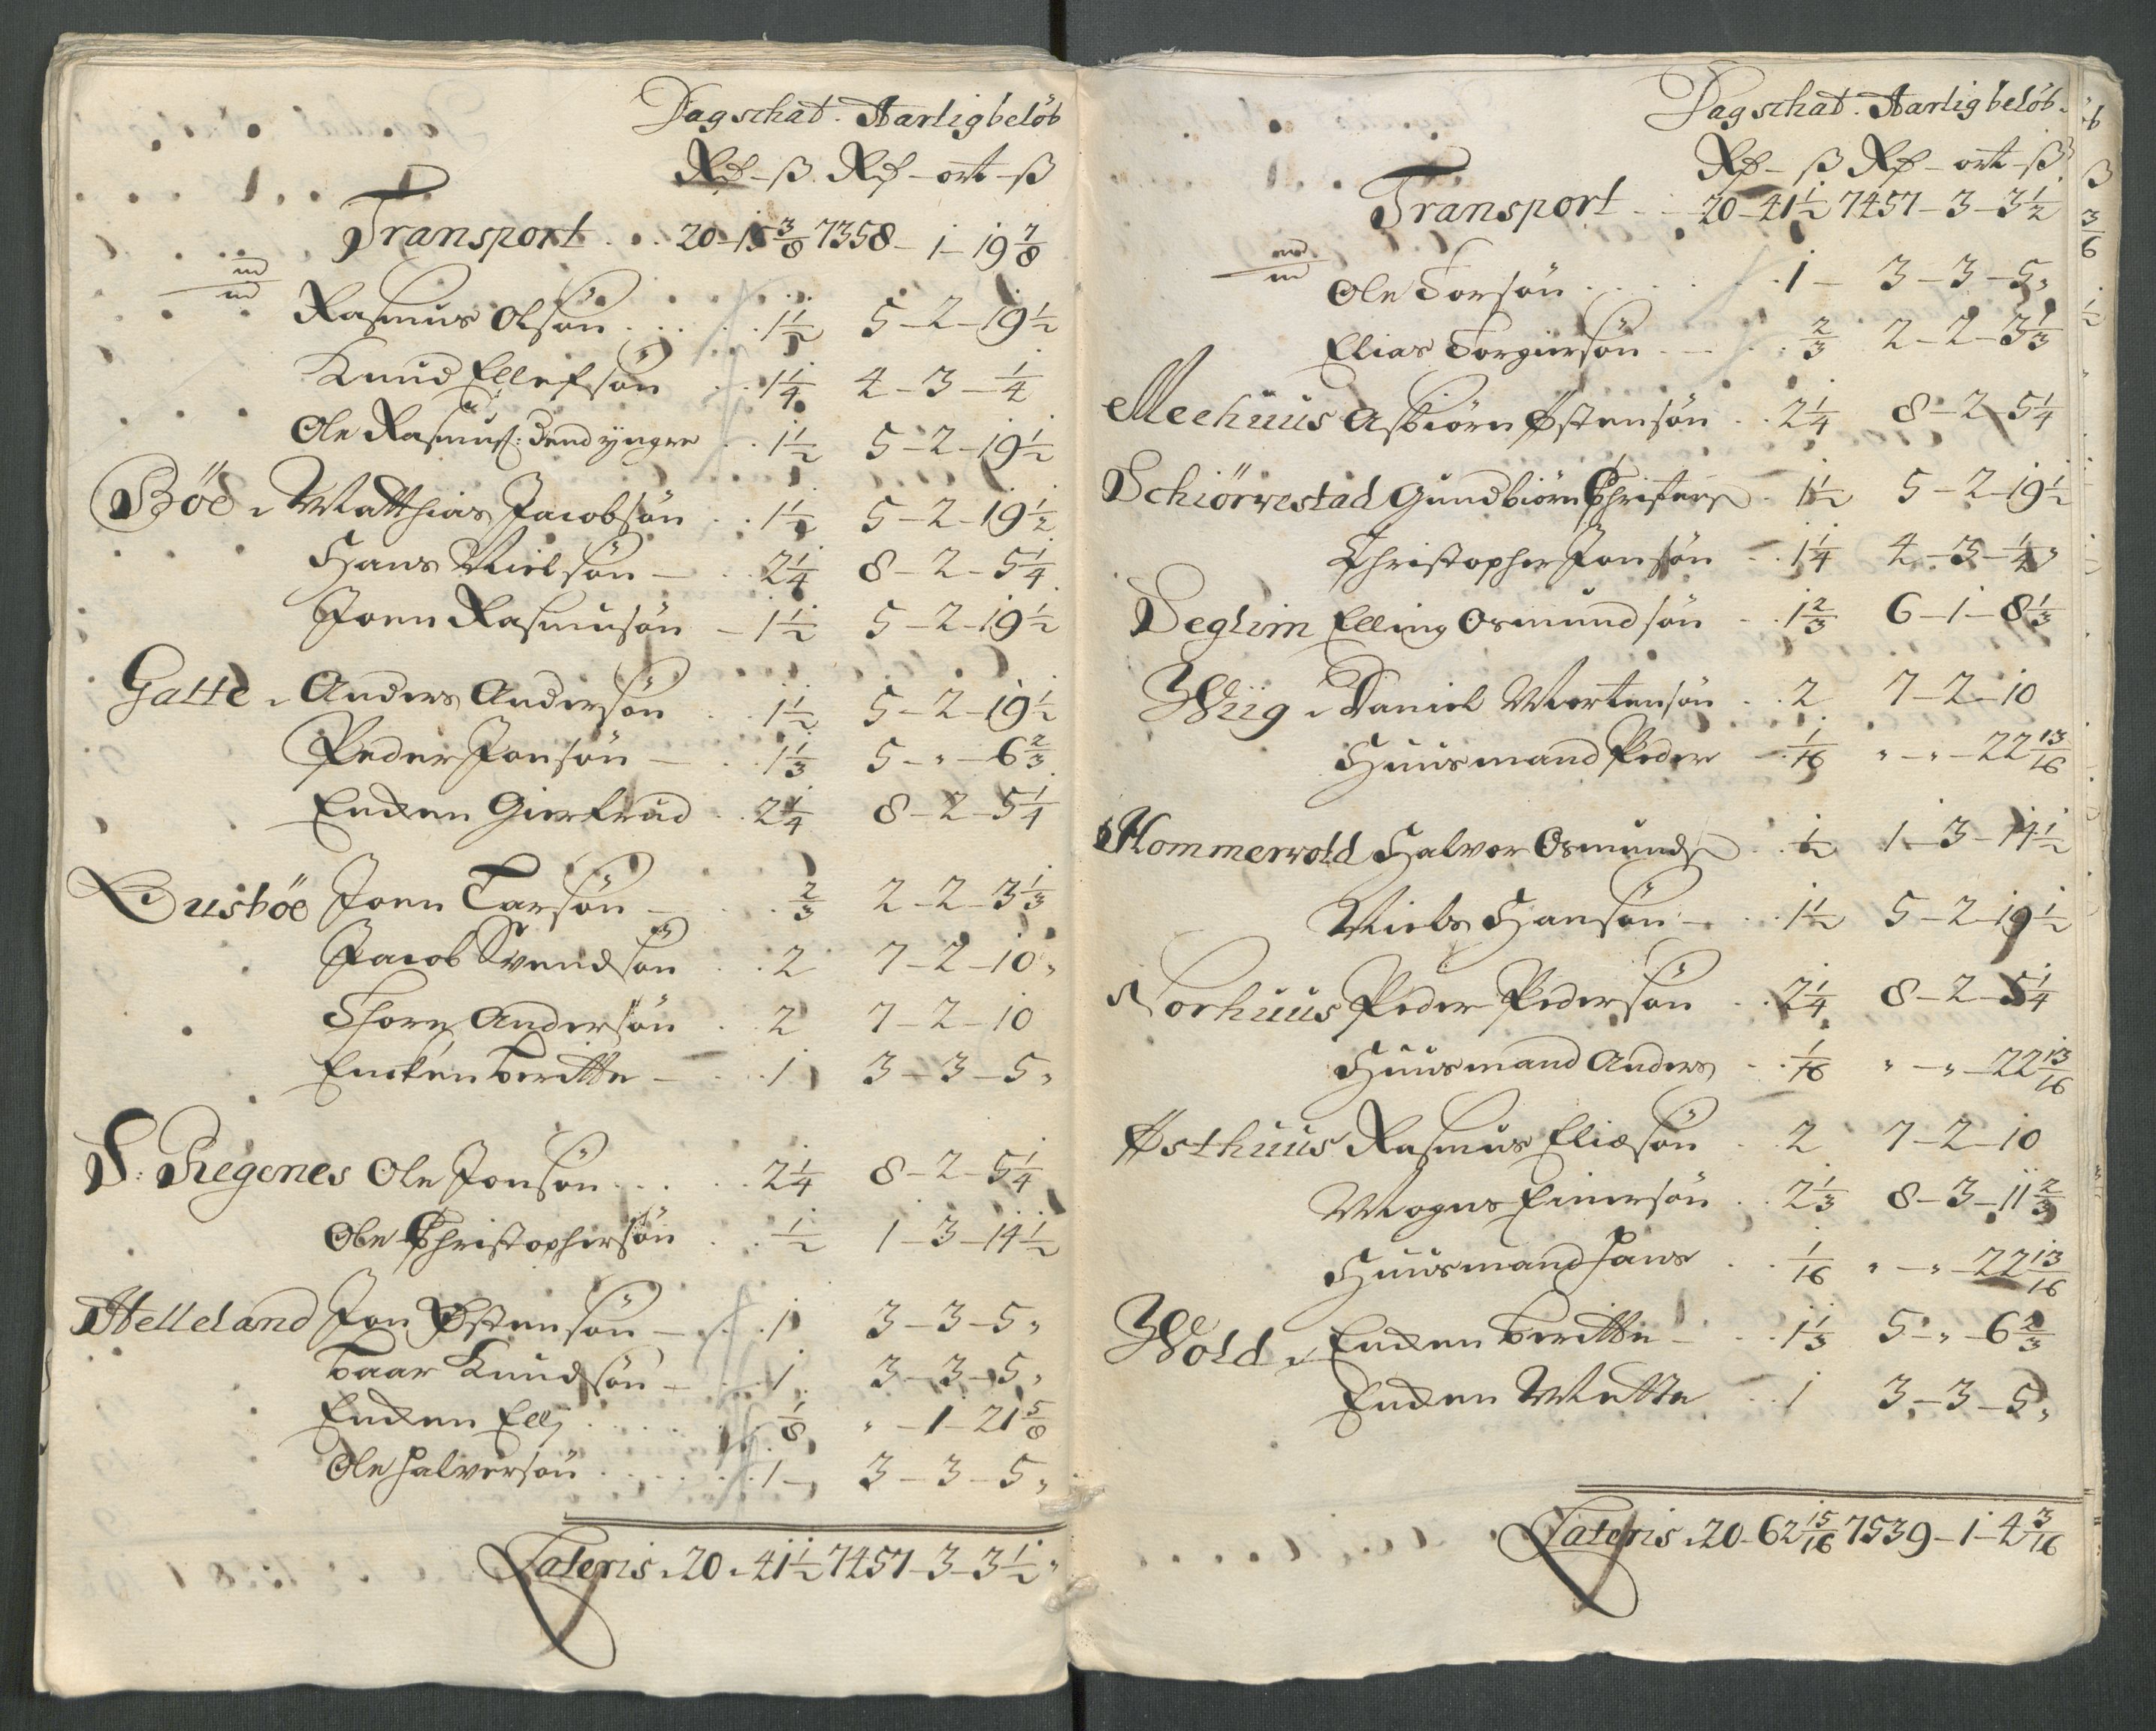 Dagschat. Aarligbelöb
Rd – ß. Rd – ort – ß
Transport . . . 20 – 15 3/8 7358 – 1 – 19 7/8
Rasmus Olsön . . . 1 1/2 5 – 2 – 19 1/2
Knud Ellefsön . . 1 1/4 4 – 3 – 1/4
Ole Rasmuss: dend yngre . . 1 1/2 5 – 2 – 19 1/2
Böe Matthias Jacobsön . . 1 1/2 5 – 2 – 19 1/2
Hans Nielsön – . . 2 1/4 8 – 2 – 5 1/4
Joen Rasmusön – 1 1/2 5 – 2 – 19 1/2
Gatte Anders Andersön . . 1 1/2 5 – 2 – 19 1/2
Peder Jonsön – . . 1 1/3 5 – „ – 6 2/3
Enken Giertrud . . 2 1/4 8 – 2 – 5 1/4
Busböe Joen Tarsön – . . 2/3 2 – 2 – 3 1/3
Jacob Svendsön . . 2 7 – 2 – 10 „
Thore Andersön . . 2 7 – 2 – 10
Encken Beritte – . . 1 3 – 3 – 5 „
S: Regenes Ole Jonsön . . . 2 1/4 8 – 2 – 5 1/4
Ole Christophersön . . 1/2 1 – 3 – 14 1/2
Helleland Jon Østensön – . . 1 3 – 3 – 5 „
Baar Knudsön – . . 1 3 – 3 – 5 „
Enken Elly . . . 1/8 „ – 1 – 21 5/8
Ole Halversön . . . 1 – 3 – 3 – 5 „
Lateris . 20 – 41 1/2 7457 – 3 – 3 1/2
Dagschat. Aarligbelöb
Rd – ß Rd – ort – ß
Transport . . 20 – 41 1/2 7457 – 3 – 3 1/2
Ole Torsön . . . 1 – 3 – 3 – 5 „
Elias Torgiersön – . . 2/3 2 – 2 – 3 1/3
Meehuus Asbiörn Østensön . . 2 1/4 8 – 2 – 5 1/4
Schiörvestad Gundbiörn Christens . 1 1/2 5 – 2 – 19 1/2
Christopher Jonsön – . 1 1/4 4 – 3 – 1/4 „
Deglim Elling Osmundsön . . 1 2/3 6 – 1 – 8 1/3
Wiig Daniel Mortensön . . 2 7 – 2 – 10
Huusmand Peder – . 1/16 „ – „ – 22 13/16
Hommervold Halvor Osmunds . . 1/2 1 – 3 – 14 1/2
Niels Hansön – . . 1 1/2 5 – 2 – 19 1/2
Norhuus Peder Pedersön . . 2 1/4 8 – 2 – 5 1/4
Huusmand Anders – . 1/16 „ – „ – 22 13/16
Østhuus Rasmus Eliesön . 2 7 – 2 – 10
Mogns Einersön . . 2 1/3 8 – 3 – 11 2/3
Huusmand Hans . . 1/16 „ – „ – 22 13/16
Wold Enken Beritte – . . 1 1/3 5 – „ – 6 2/3
Enken Mette . . 1 3 – 3 – 5 „
Lateris . 20 – 62 15/16 7539 – 1 – 4 3/16